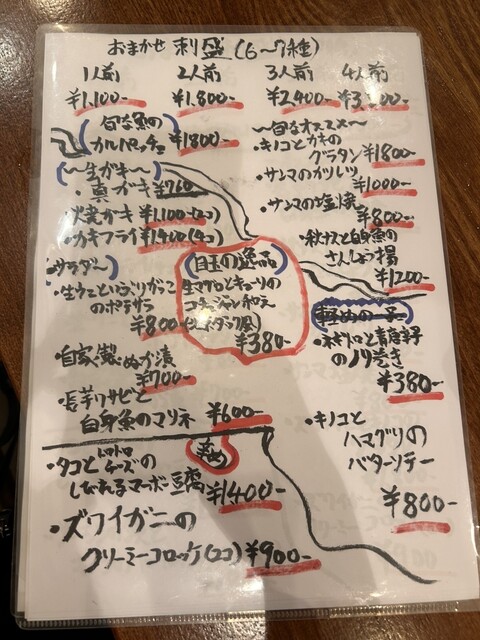 おまかせ 刺盛(6〜7種)
1人前 2人前 3人前 4人前
¥1,100- ¥1,800- ¥2,400- ¥3,200-
(旬な魚の
カルパッチョ) ¥1800-
(〜生ガキ〜)
・真ガキ ¥760
・焼ガキ ¥1,100-(2コ)
・カキフライ ¥1,400(4コ)
(サラダ〜)
・生ウニといぶりがっこ
のポテサラ
¥800-
・自家製ぬか漬
¥700-
・長芋ワサビと
白身魚のマリネ ¥600-
(目玉の逸品)
生マグロとキューリの
¥380-
〜旬なオススメ〜
・キノコとカキの
グラタン ¥1800-
・サンマのカツレツ
¥1000-
・サンマの塩焼
¥800-
・秋ナスと白身魚の
さんしょう揚
¥1200-
軽めの一手
・ネギトロと青唐辛子
のノリ巻き
¥380-
・キノコと
ハマグリの
バターソテー
¥800-
・タコとトロトロ
チーズの
しびれるマーボー豆腐
¥1400-
・ズワイガニの
クリーミーコロッケ(2コ) ¥900-